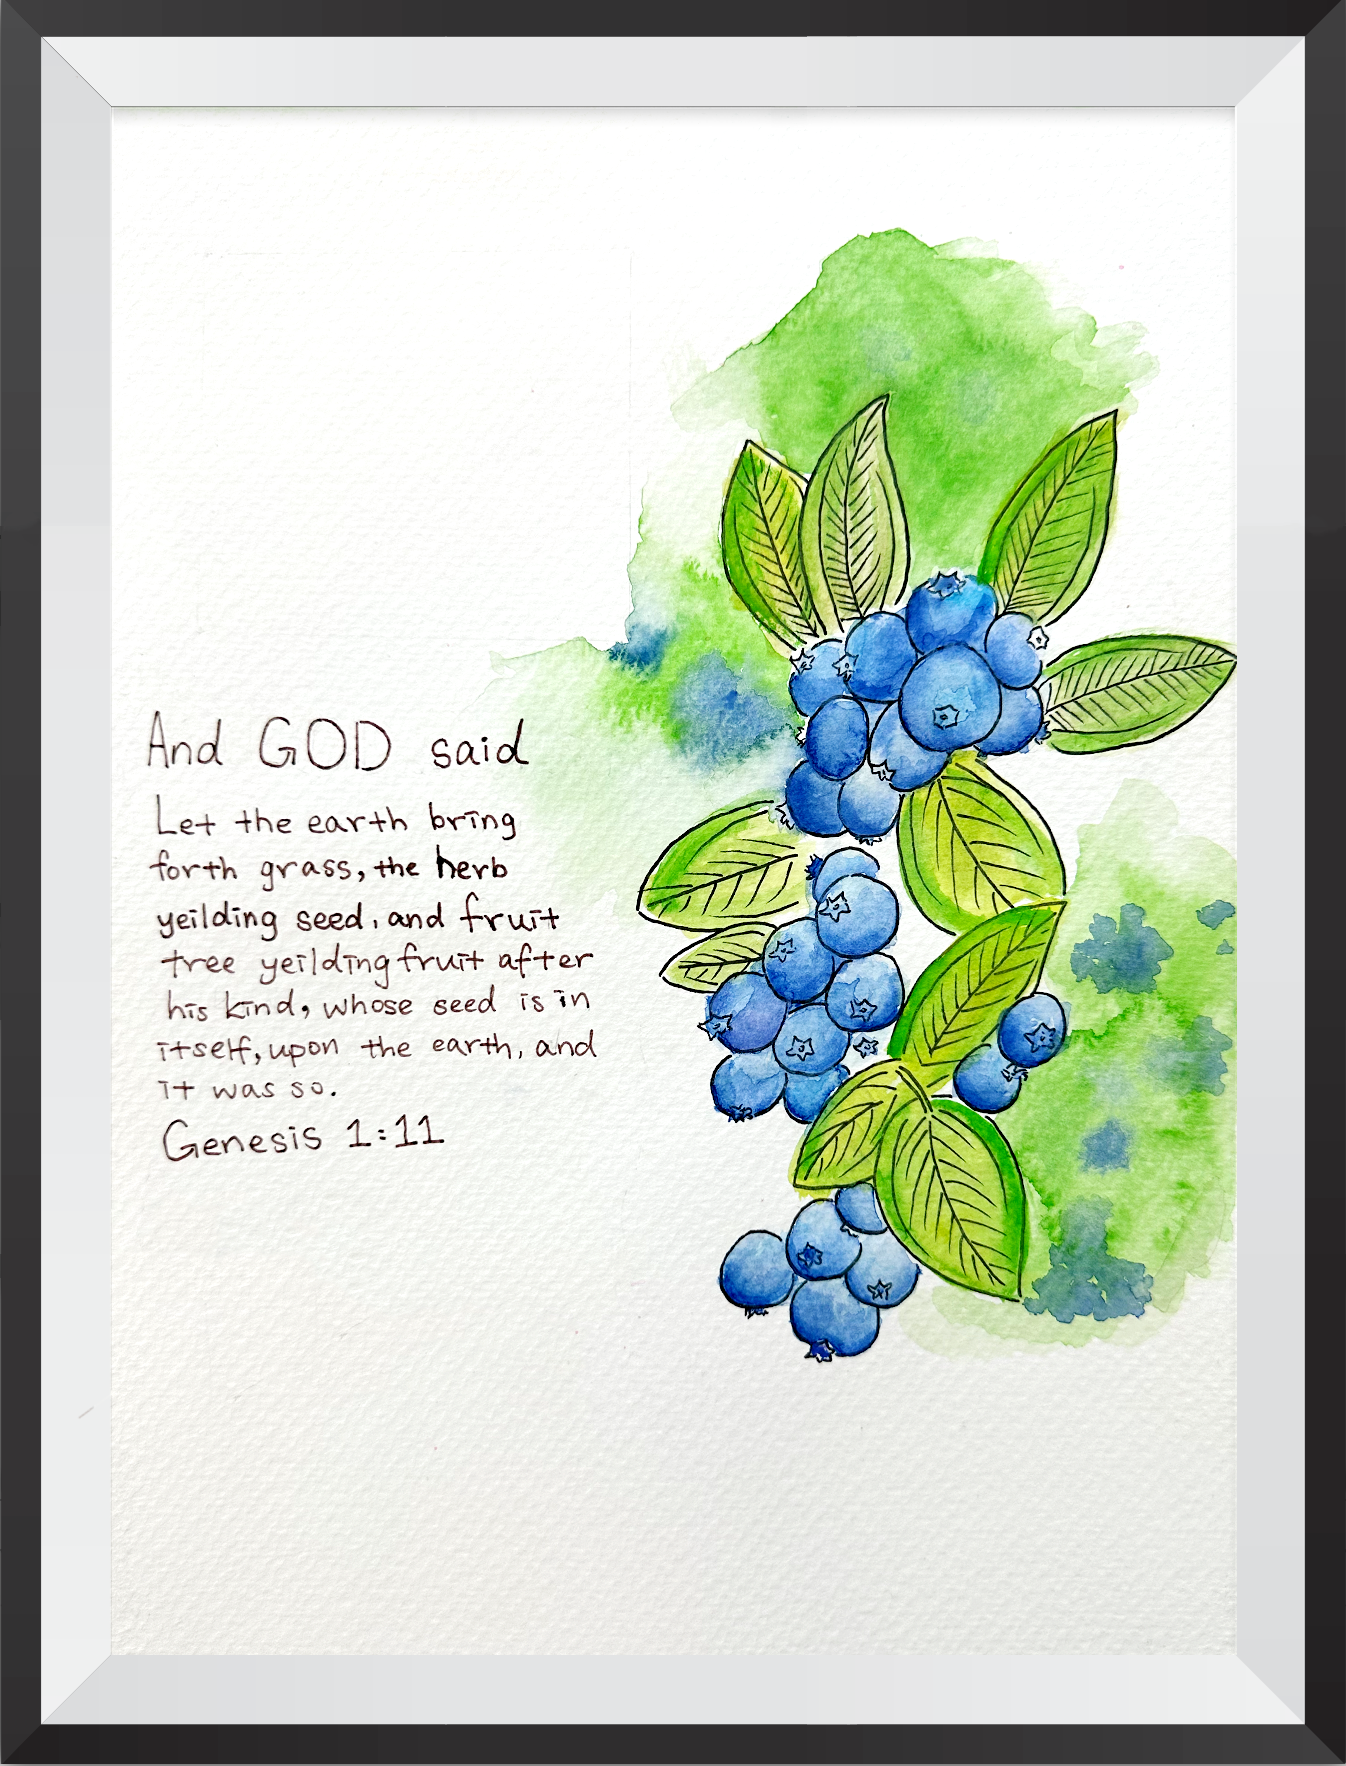 And GOD said
Let the earth bring
forth grass, the herb
yeilding seed, and fruit
tree yeilding fruit after
his kind, whose seed is in
itself, upon the earth, and
it was so.
Genesis 1:11